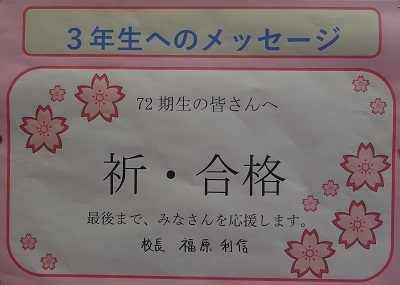 3年生へのメッセージ
72期生の皆さんへ
祈・合格
最後まで、みなさんを応援します。
校長 福原利信